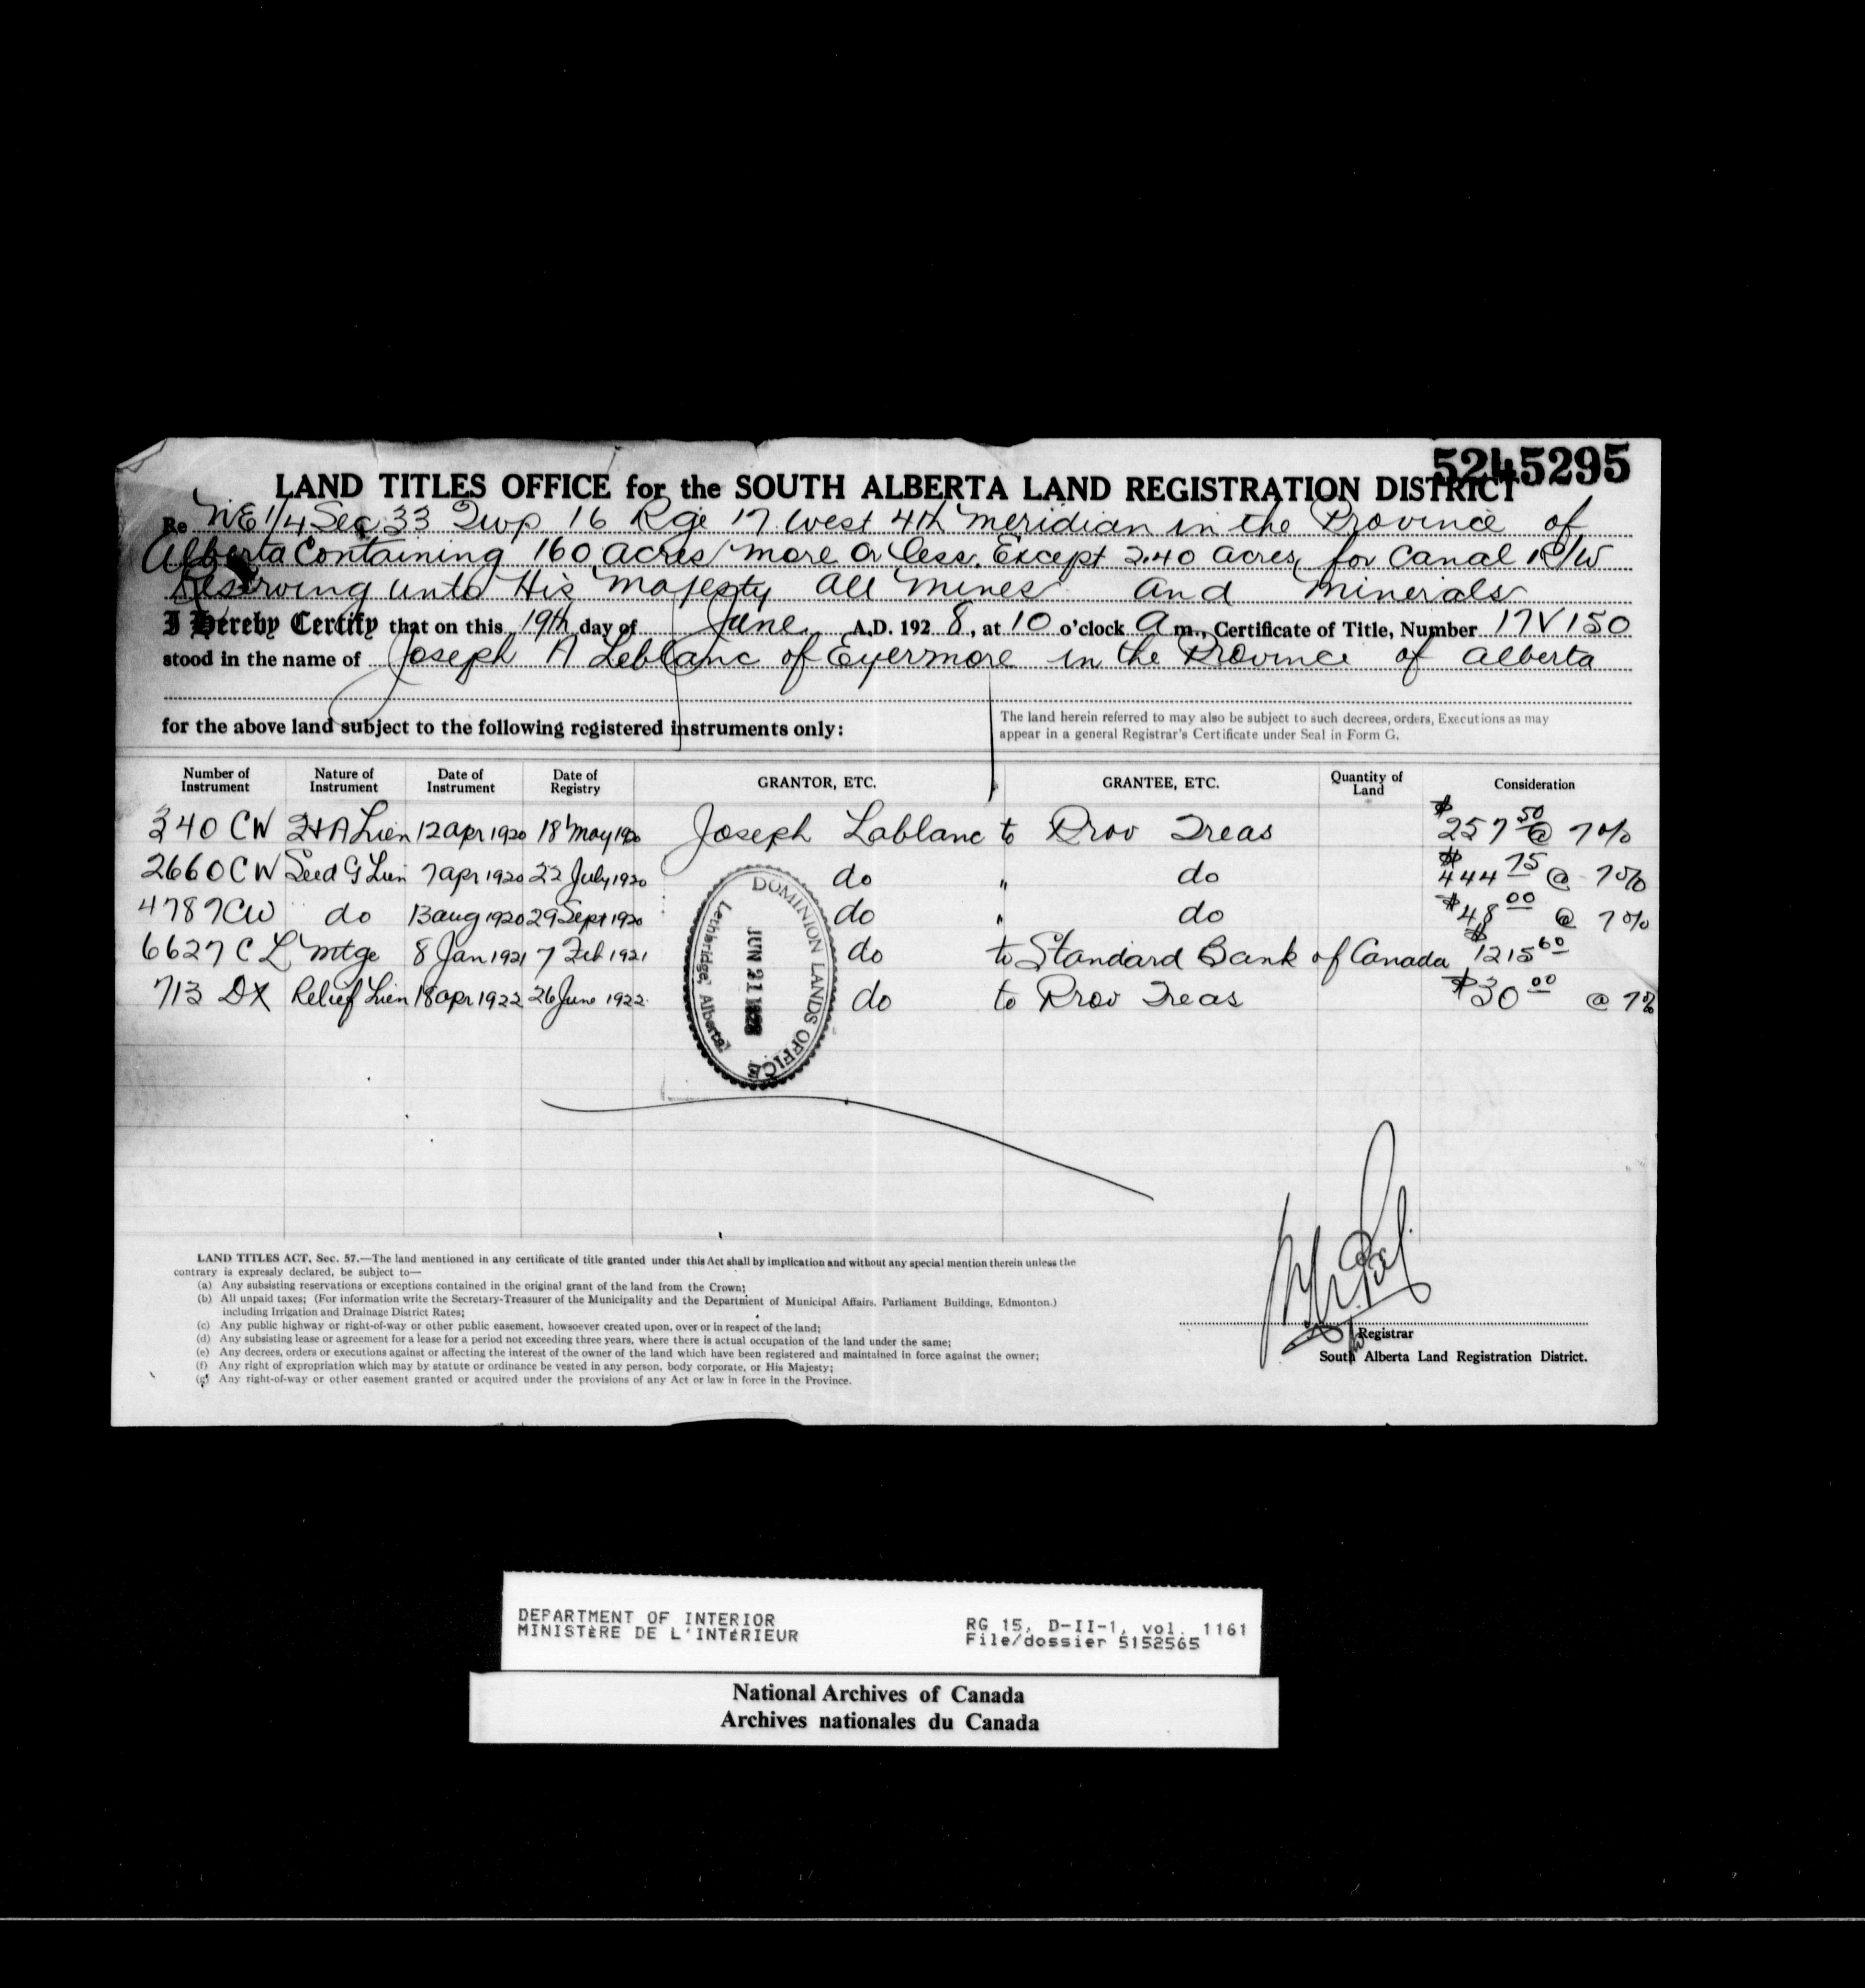 5245295
LAND TITLES OFFICE for the SOUTH ALBERTA LAND REGISTRATION DISTRICT
Re NE 1/4 Sec 33 Twp 16 Rge 17 West 4th Meridian in the Province of
Alberta Containing 160 acres more or less. Except 2.40 acres, for Canal R/W
Reserving unto His Majesty all Mines and Minerals
I Hereby Certify that on this 19th day of June A.D. 1928, at 10 o'clock a m., Certificate of Title, Number 17V150
stood in the name of Joseph A Leblanc of Eyermore in the Province of Alberta
for the above land subject to the following registered instruments only:
The land herein referred to may also be subject to such decrees, orders, Executions as may
appear in a general Registrar's Certificate under Seal in Form G.
Number of Instrument Nature of Instrument Date of Instrument Date of Registry GRANTOR, ETC. GRANTEE, ETC. Quantity of Land Consideration
340 CW Lien 12 apr 1920 18 May 1920 Joseph Lablanc to Prov Treas $257 50 @ 7%
2660 CW Seed G Lien 7 apr 1920 22 July 1920 do " do $444 75 @ 7%
4787 CW do 13 aug 1920 29 Sept 1920 do " do $48 00 @ 7%
6627 CL Mtge 8 Jan 1921 7 Feb 1921 do to Standard Bank of Canada $1215 60
713 DX Relief Lien 18 apr 1922 26 June 1922 do to Prov Treas $30 00 @ 7%
DOMINION LANDS OFFICE
JUN 21 1928
Lethbridge, Alberta
LAND TITLES ACT, Sec. 57.—The land mentioned in any certificate of title granted under this Act shall by implication and without any special mention therein unless the
contrary is expressly declared, be subject to—
(a) Any subsisting reservations or exceptions contained in the original grant of the land from the Crown;
(b) All unpaid taxes; (For information write the Secretary-Treasurer of the Municipality and the Department of Municipal Affairs, Parliament Buildings, Edmonton.)
including Irrigation and Drainage District Rates;
(c) Any public highway or right-of-way or other public easement, howsoever created upon, over or in respect of the land;
(d) Any subsisting lease or agreement for a lease for a period not exceeding three years, where there is actual occupation of the land under the same;
(e) Any decrees, orders or executions against or affecting the interest of the owner of the land which have been registered and maintained in force against the owner;
(f) Any right of expropriation which may by statute or ordinance be vested in any person, body corporate, or His Majesty;
(g) Any right-of-way or other easement granted or acquired under the provisions of any Act or law in force in the Province.
Registrar
South Alberta Land Registration District.
DEPARTMENT OF INTERIOR
MINISTÈRE DE L'INTÉRIEUR
RG 15, D-II-1, vol. 1161
File/dossier 5152565
National Archives of Canada
Archives nationales du Canada